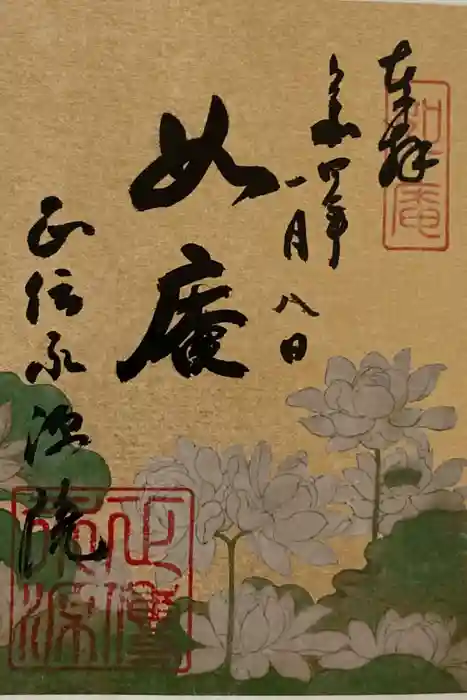 奉拝
如庵
令和四年
一月
八日
如庵
正伝永源院
正傳
永源